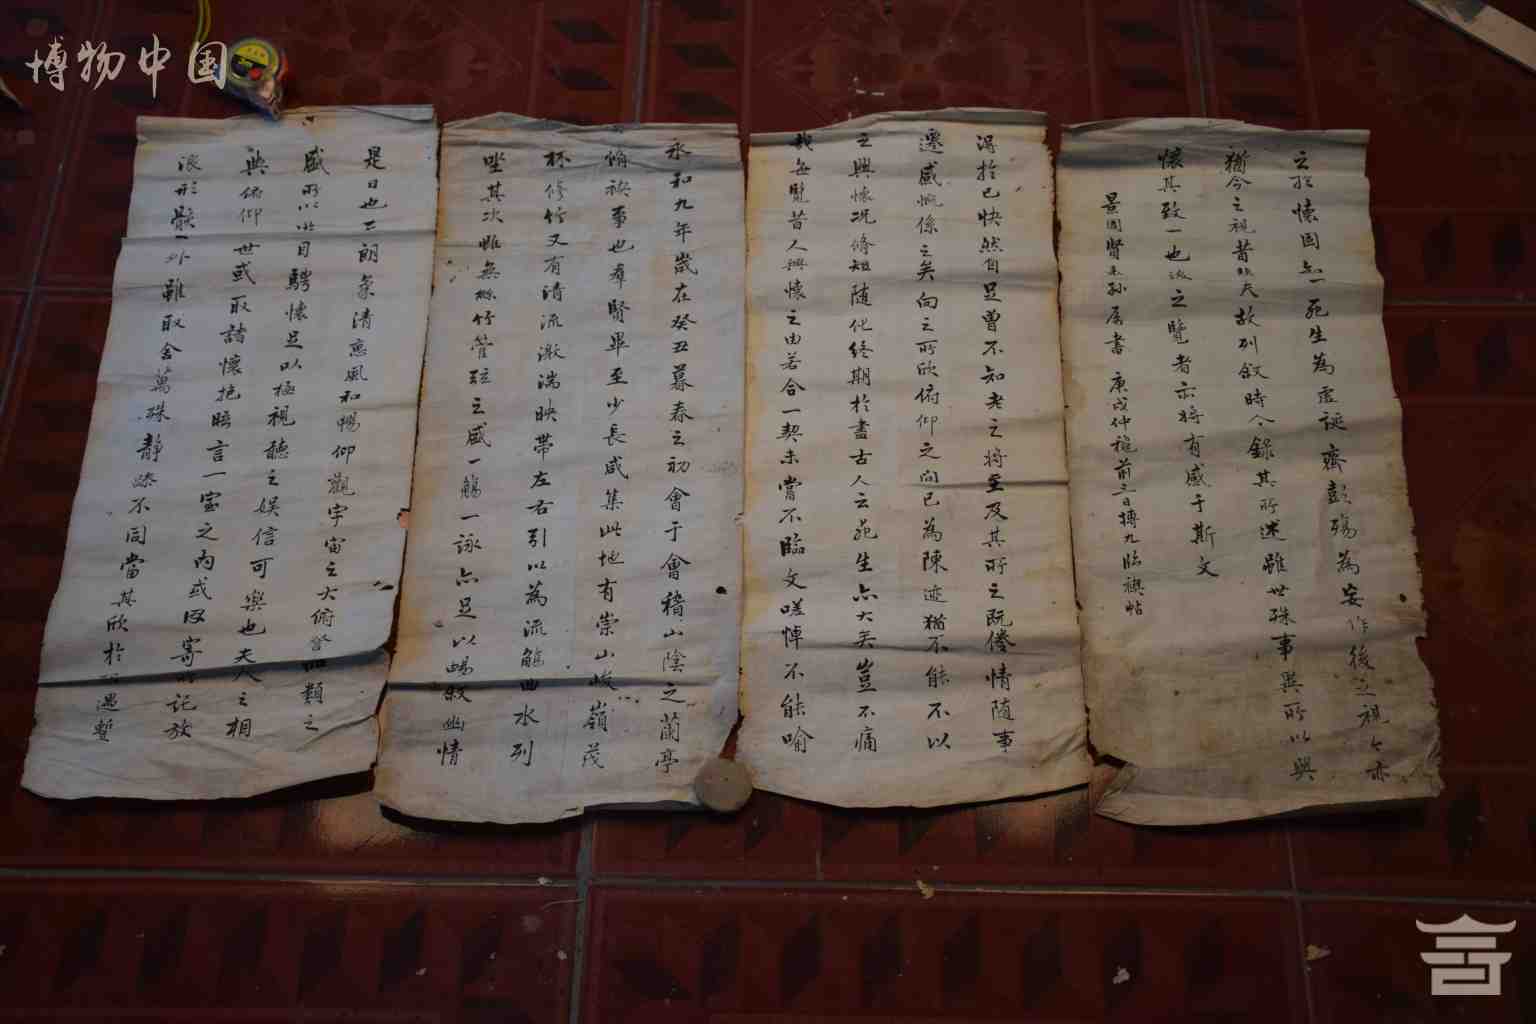 博物中国
永和九年歲在癸丑暮春之初會于會稽山陰之蘭亭
脩禊事也羣賢畢至少長咸集此地有崇山峻嶺茂
林修竹又有清流激湍映帶左右引以為流觴曲水列
坐其次雖無絲竹管弦之盛一觴一詠亦足以暢敘幽情
是日也天朗氣清惠風和暢仰觀宇宙之大俯察品類之
盛所以遊目騁懷足以極視聽之娛信可樂也夫人之相
與俯仰一世或取諸懷抱晤言一室之內或因寄所託放
浪形骸之外雖取舍萬殊靜躁不同當其欣於所遇暫
得於己快然自足曾不知老之將至及其所之既倦情隨事
遷感慨係之矣向之所欣俯仰之間已為陳迹猶不能不以
之興懷況脩短隨化終期於盡古人云死生亦大矣豈不痛
哉每覽昔人興懷之由若合一契未嘗不臨文嗟悼不能喻
之於懷固知一死生為虛誕齊彭殤為妄作後之視今亦
猶今之視昔悲夫故列敘時人錄其所述雖世殊事異所以興
懷其致一也後之覽者亦將有感于斯文
景園賢孫屬書 庚戌仲龝前三日摶九臨禊帖